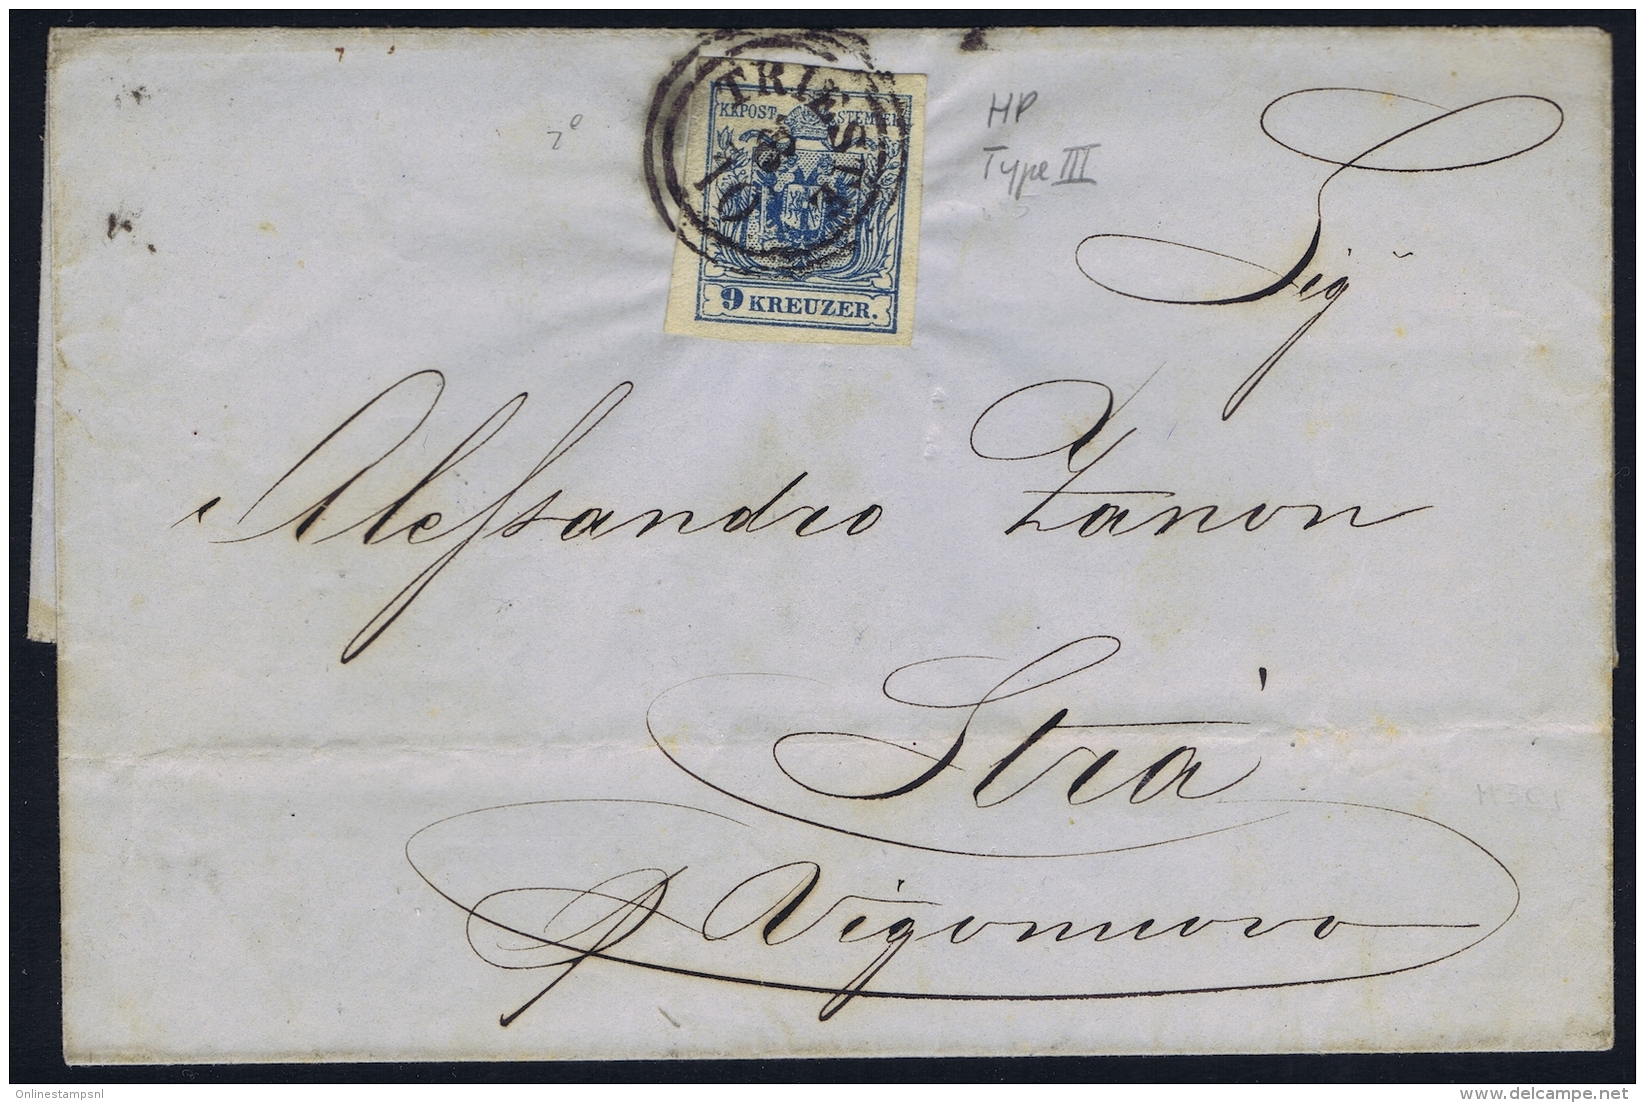 TRIESTE
KKPOST STEMPEL
9 KREUZER.
HP
Type III
Sigr
Alessandro Zanon
Strà
p Vigonuovo
Onlinestampsnl
www.delcampe.net